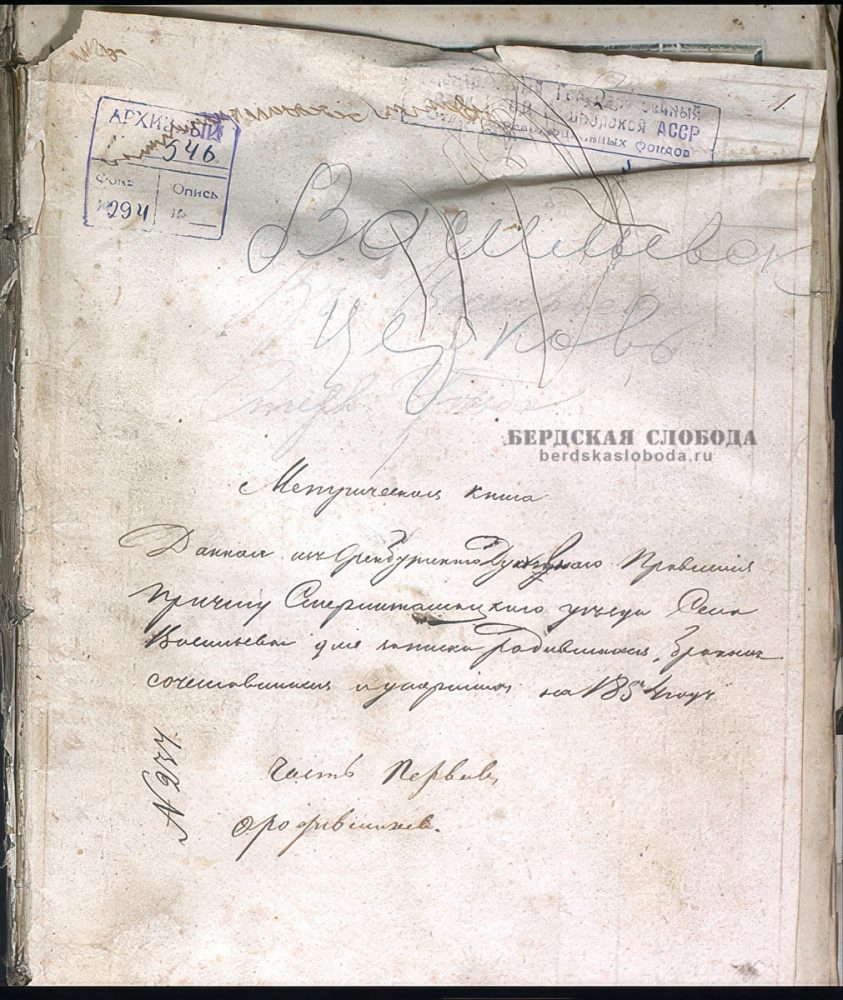 1
АРХИВНЫЙ
546
Фонд
№ 294
Опись
№
Государственный
АССР
фондов
Васильевск
Церковь
Стерл. Уезда
БЕРДСКАЯ СЛОБОДА
berdskasloboda.ru
Метрическая книга
Данная изъ Оренбургскаго Духовнаго Правления
Причту Стерлитамацкаго уезда Села
Васильева для записки Родившихся, бракомъ
сочетавшихся и умершихъ на 1854 годъ
№ 277
Часть Первая,
о родившихся.